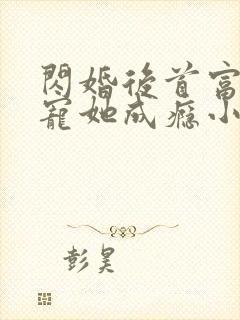 閃婚後首富
寵她成癮小
彭昊